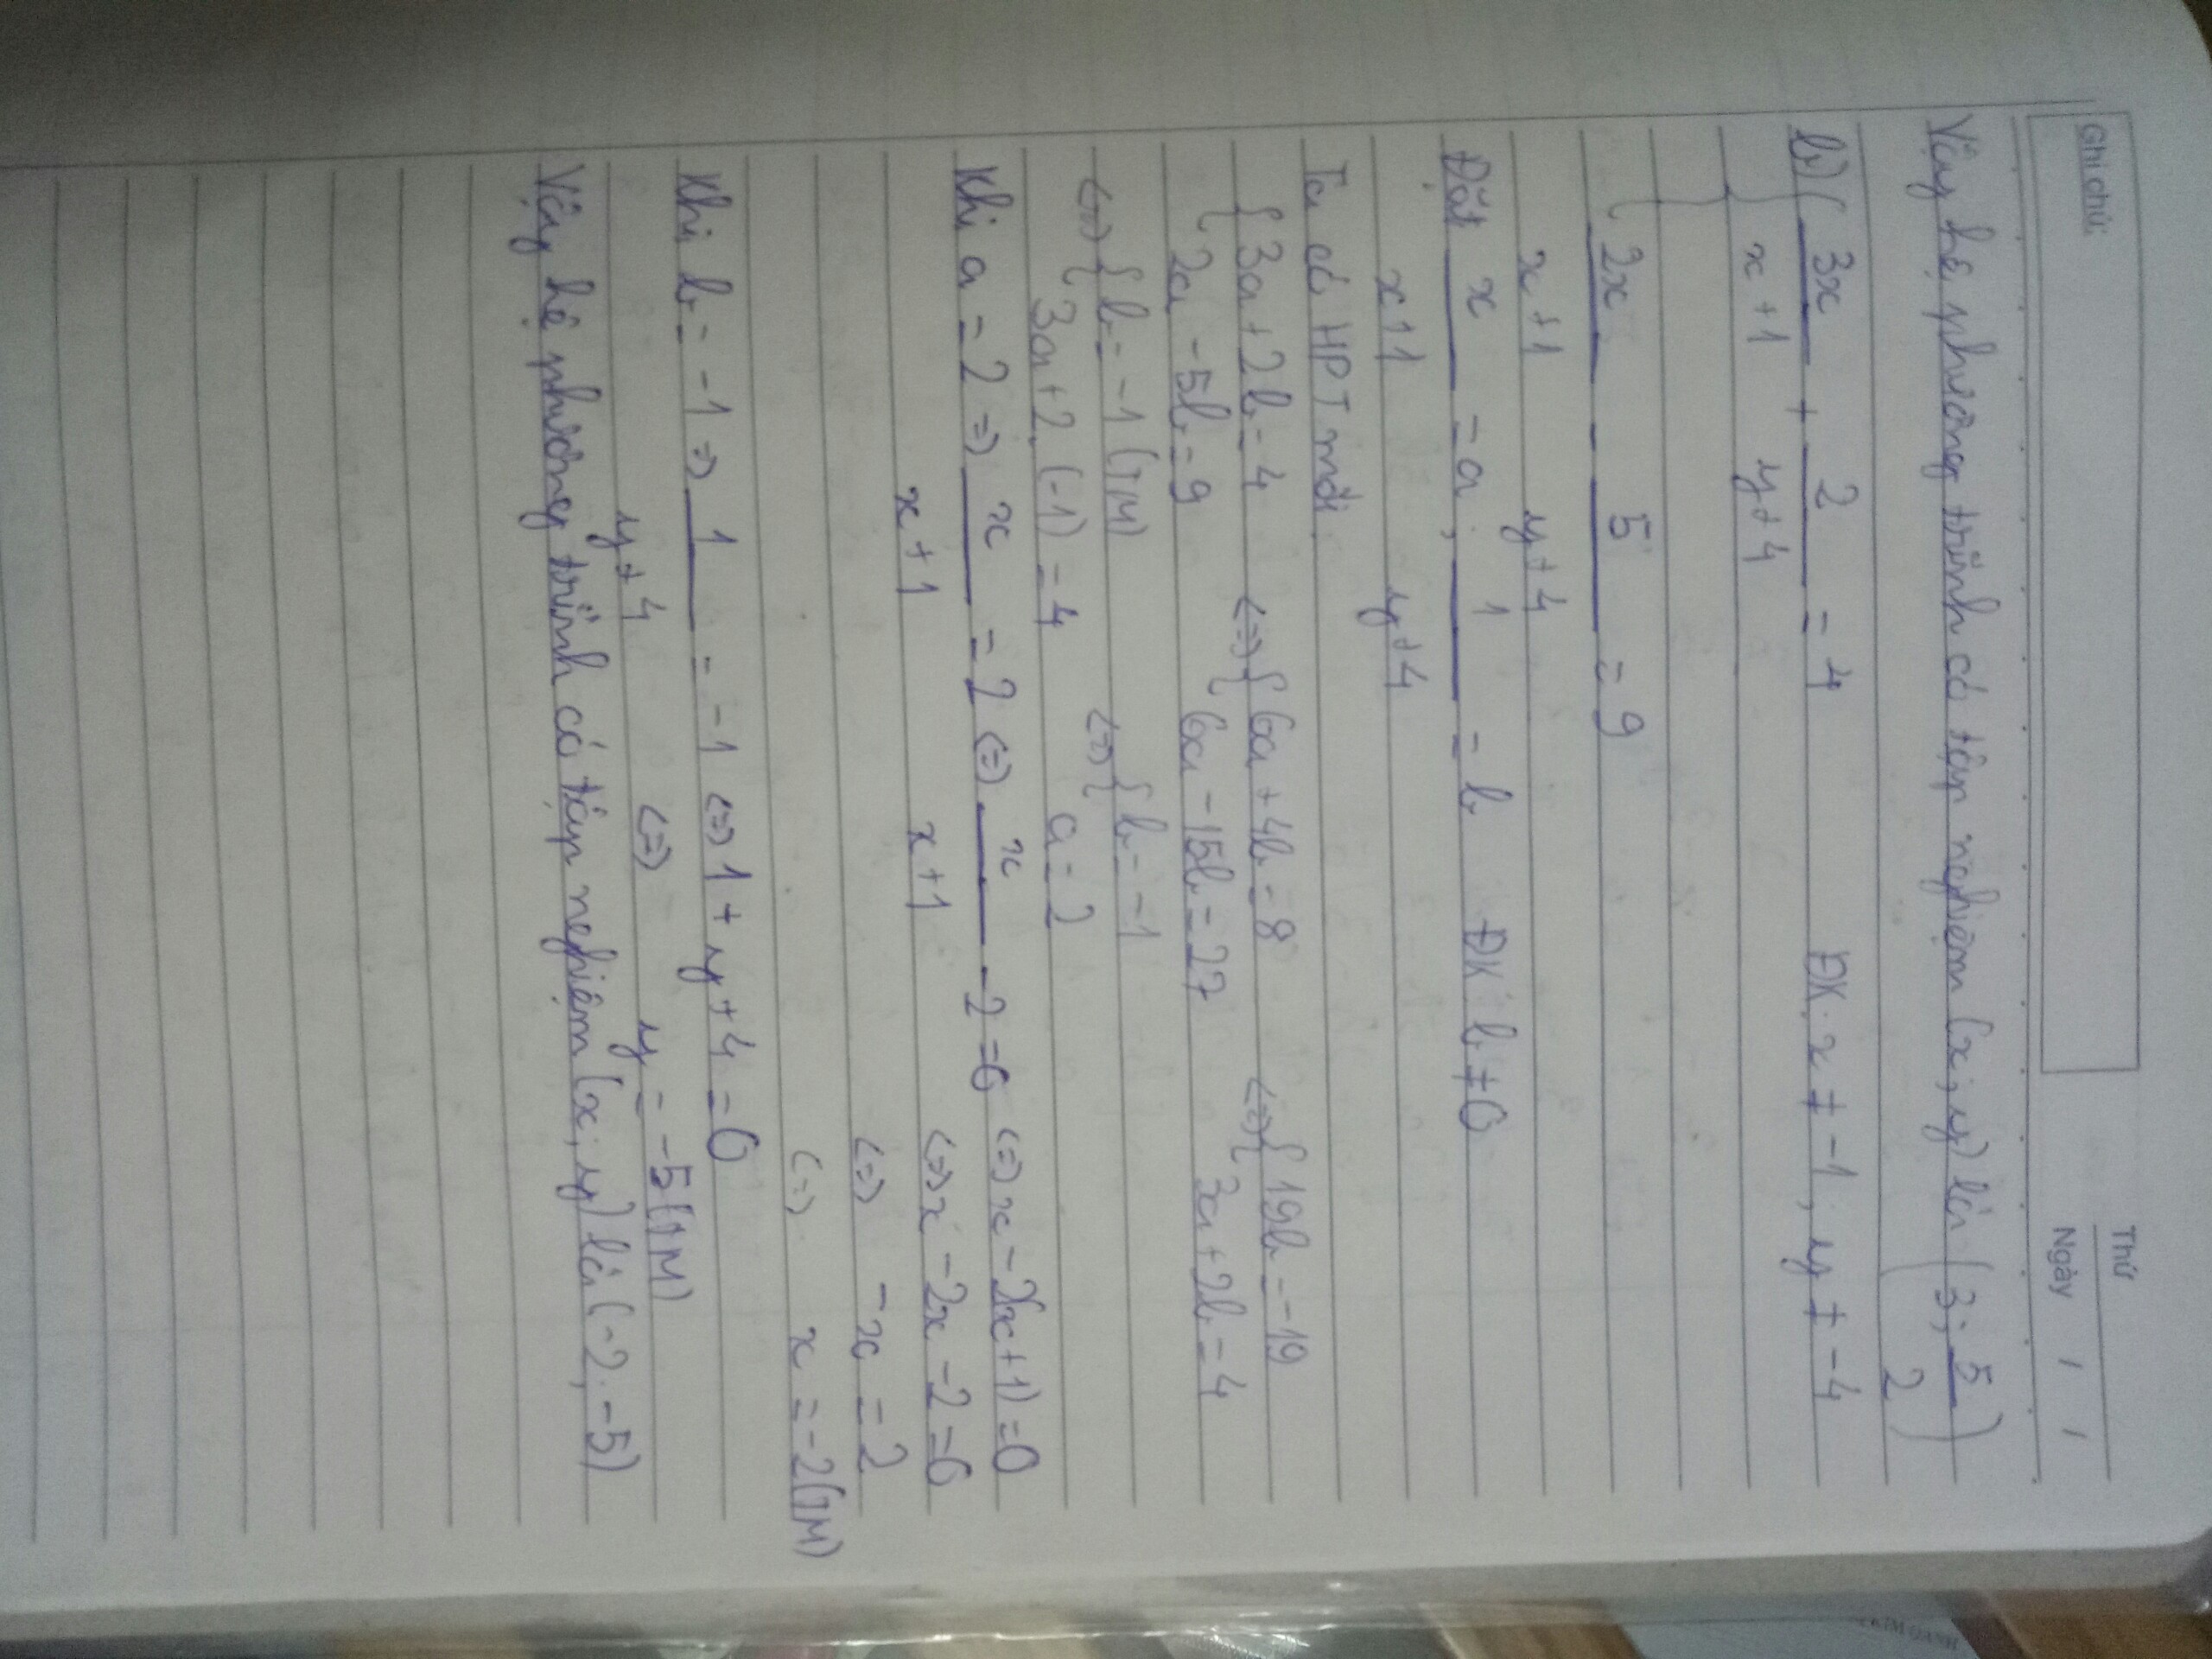 Ghi chú:
Thứ
Ngày / /
Vậy hệ phương trình có tập nghiệm (x; y) là (3; 5/2)
b) { 3x/(x+1) + 2/(y+4) = 4 ĐK: x ≠ -1; y ≠ -4
{ 2x/(x+1) - 5/(y+4) = 9
Đặt x/(x+1) = a; 1/(y+4) = b ĐK: b ≠ 0
Ta có HPT mới
{ 3a + 2b = 4 <=> { 6a + 4b = 8 <=> { 19b = -19
{ 2a - 5b = 9 { 6a - 15b = 27 { 3a + 2b = 4
<=> { b = -1 (TM) <=> { b = -1
{ 3a + 2.(-1) = 4 { a = 2
Khi a = 2 => x/(x+1) = 2 <=> x/(x+1) - 2 = 0 <=> x - 2(x+1) = 0
<=> x - 2x - 2 = 0
<=> -x = 2
<=> x = -2 (TM)
Khi b = -1 => 1/(y+4) = -1 <=> 1 + y + 4 = 0
<=> y = -5 (TM)
Vậy hệ phương trình có tập nghiệm (x; y) là (-2; -5)